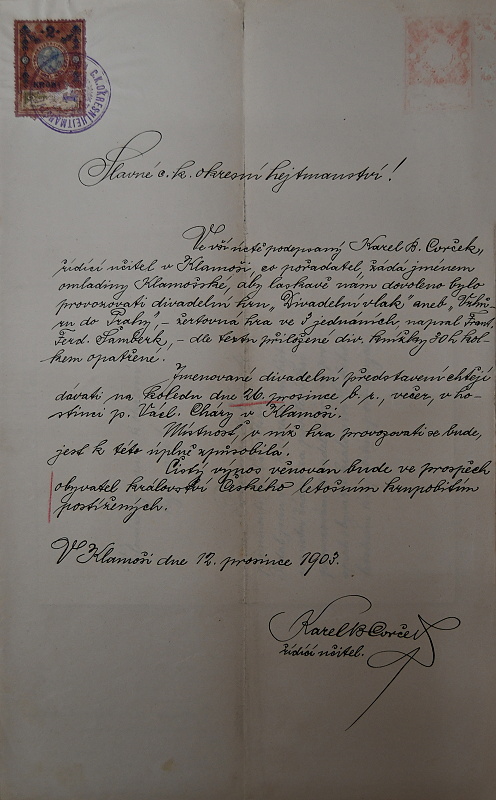 C. K. OKRESNÍ HEJTMAN
2
Slavné c. k. okresní hejtmanství!
Ve vší úctě podepsaný Karel B. Corček,
řídící učitel v Klamoši, co pořadatel, žádá jménem
omladiny Klamošské, aby laskavě nám dovoleno bylo
provozovati divadelní hru „Divadelní vlak" aneb „Vzhů-
ru do Prahy", – žertovná hra ve 3 jednáních, napsal Frant.
Ferd. Šamberk, – dle textu přiložené div. knížky 30 h kol-
kem opatřené.
Jmenované divadelní představení chtějí
dávati na Koledu dne 26. prosince b. r., večer, v ho-
stinci p. Václ. Cháry v Klamoši.
Místnost, v níž hra provozovati se bude,
jest k této úplně způsobilá.
Čistý výnos věnován bude ve prospěch
obyvatel království Českého letošním krupobitím
postižených.
V Klamoši dne 12. prosince 1903.
Karel B Corček
řídící učitel.